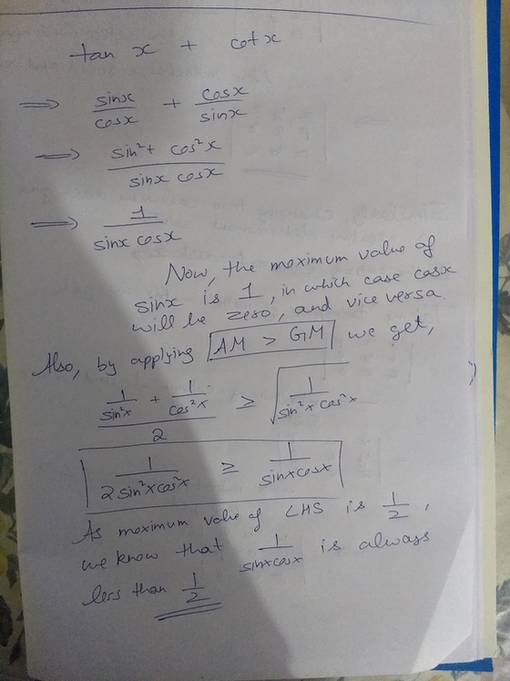 tan x + cot x
⇒ sinx/cosx + cosx/sinx
⇒ (sin² + cos²x)/(sinx cosx)
⇒ 1/(sinx cosx)
Now, the maximum value of
sinx is 1, in which case cosx
will be zero, and vice versa.
Also, by applying AM > GM we get,
(1/sin²x + 1/cos²x)/2 ≥ √(1/(sin²x cos²x))
1/(2 sin²x cos²x) ≥ 1/(sinx cosx)
As maximum value of LHS is 1/2,
we know that 1/(sinx cosx) is always
less than 1/2